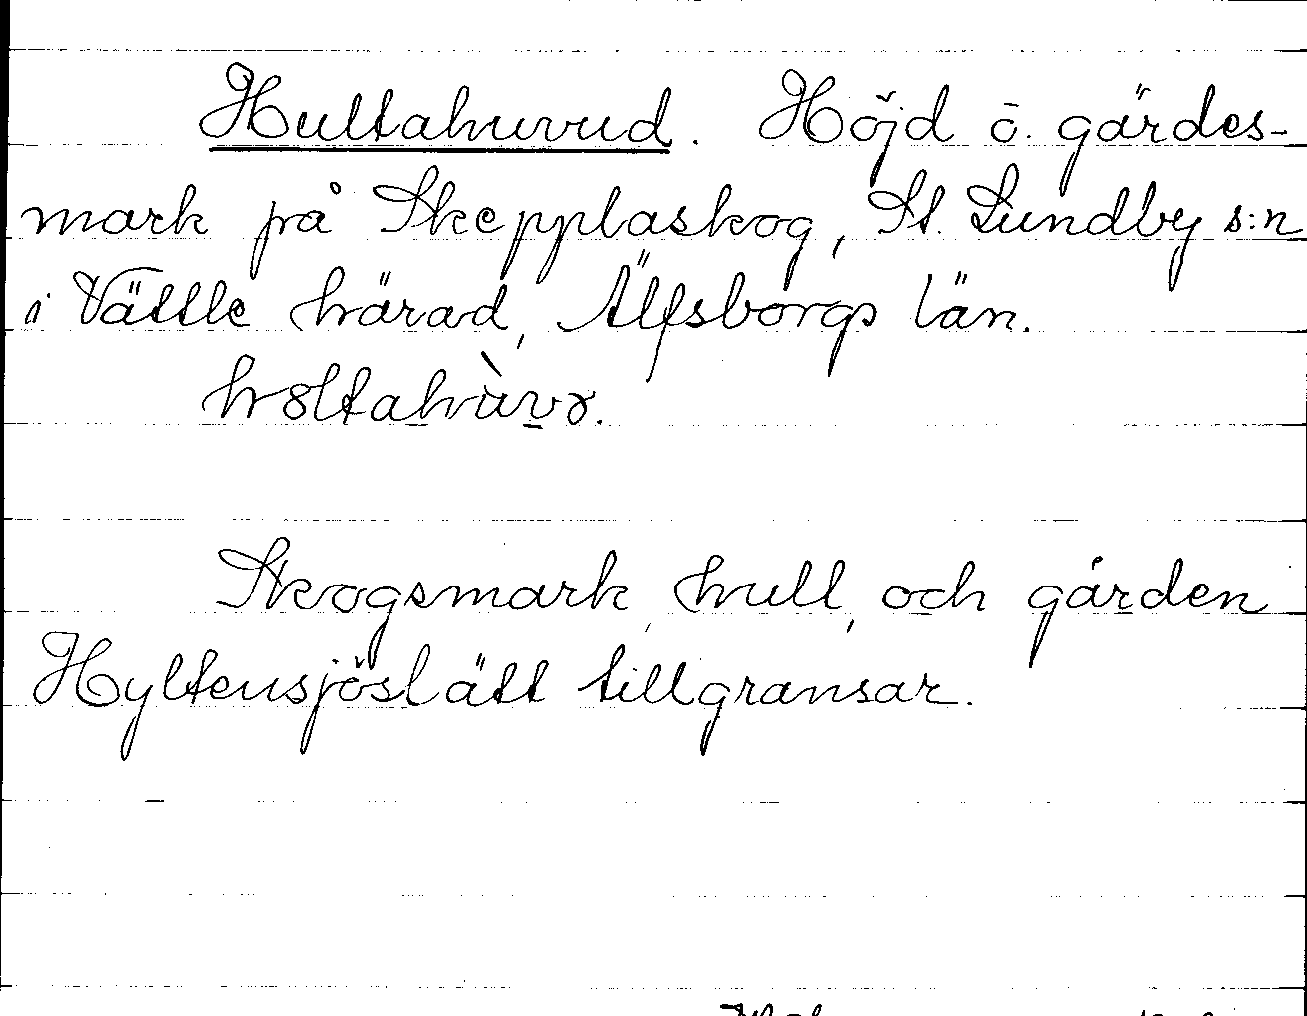 Hultahuvud. Höjd ō. gärdes-
mark på Skepplaskog, St. Lundby s:n
i Vättle härad, Älfsborgs län.
hȣltahùvɤ.
Skogsmark, hull, och gården
Hyltensjöslätt tillgränsar.